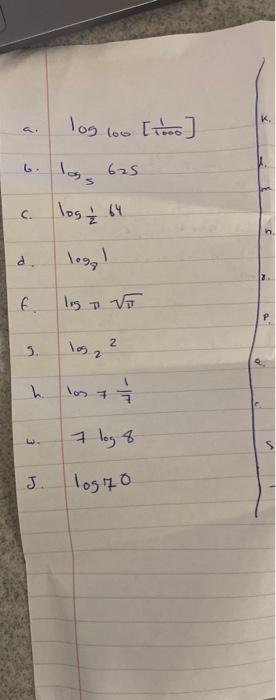 a. log 100 [1/1000]
b. log₅ 625
c. log ½ 64
d. log₈ 1
f. log π √π
g. log₂ 2
h. log 7 1/7
w. 7 log 8
J. log 7 0
k.
l.
m
n.
P.
s